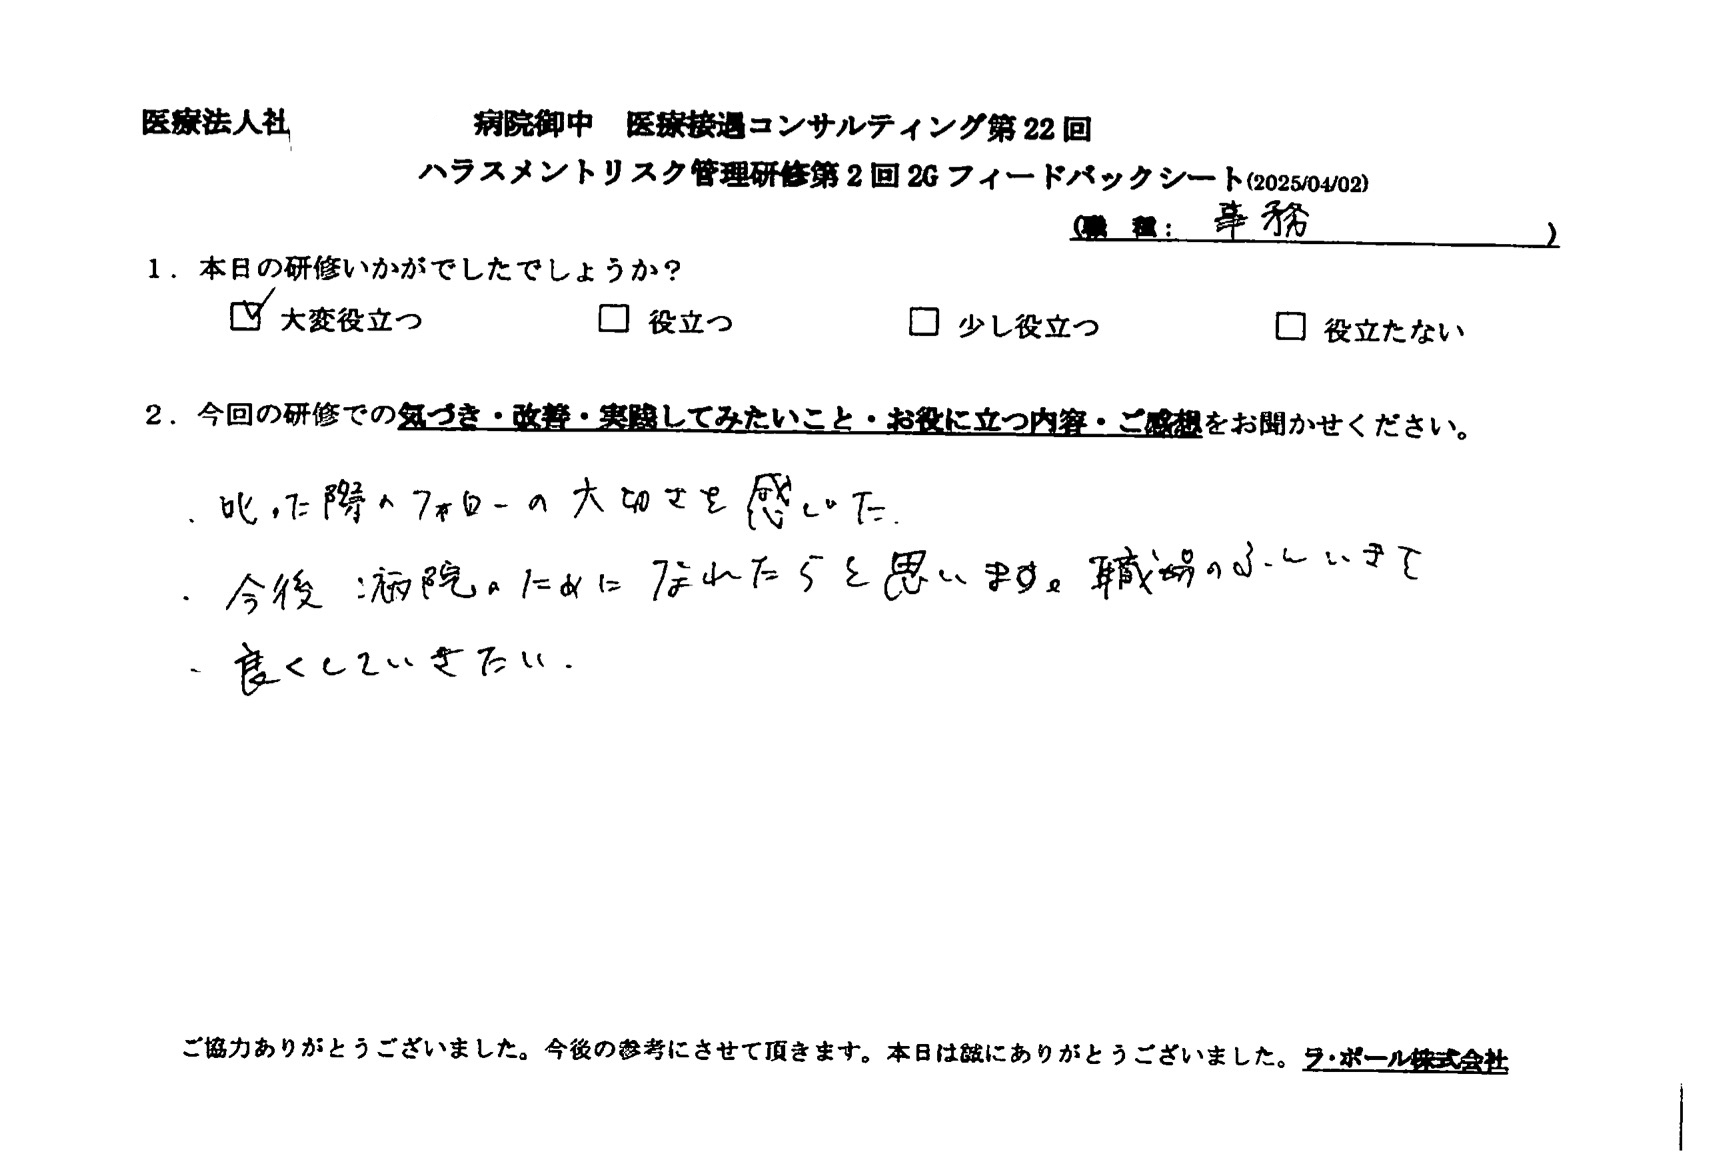 医療法人社 病院御中 医療接遇コンサルティング第22回
ハラスメントリスク管理研修第2回2Gフィードバックシート(2025/04/02)
(職 種: 事務 )
1. 本日の研修いかがでしたでしょうか?
☑ 大変役立つ □ 役立つ □ 少し役立つ □ 役立たない
2. 今回の研修での気づき・改善・実践してみたいこと・お役に立つ内容・ご感想をお聞かせください。
・叱った際のフォローの大切さを感じた.
・今後 病院のために なれたらと思います。職場のふんいきて
・良くしていきたい.
ご協力ありがとうございました。今後の参考にさせて頂きます。本日は誠にありがとうございました。ラ・ポール株式会社